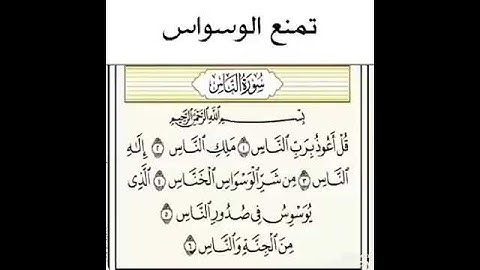 تمنع الوسواس
سُورَةُ النَّاسِ
بِسْمِ اللَّهِ الرَّحْمَٰنِ الرَّحِيمِ
قُلْ أَعُوذُ بِرَبِّ ٱلنَّاسِ ١ مَلِكِ ٱلنَّاسِ ٢ إِلَٰهِ
ٱلنَّاسِ ٣ مِن شَرِّ ٱلْوَسْوَاسِ ٱلْخَنَّاسِ ٤ ٱلَّذِى
يُوَسْوِسُ فِى صُدُورِ ٱلنَّاسِ ٥
مِنَ ٱلْجِنَّةِ وَٱلنَّاسِ ٦